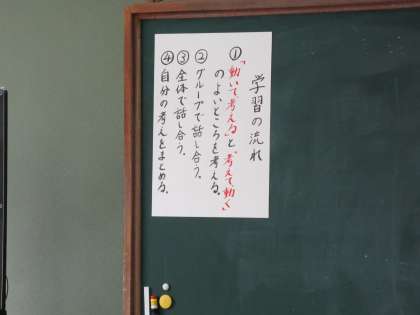 学習の流れ
①「動いて考える」と「考えて動く」
のよいところを考える。
②グループで話し合う。
③全体で話し合う。
④自分の考えをまとめる。